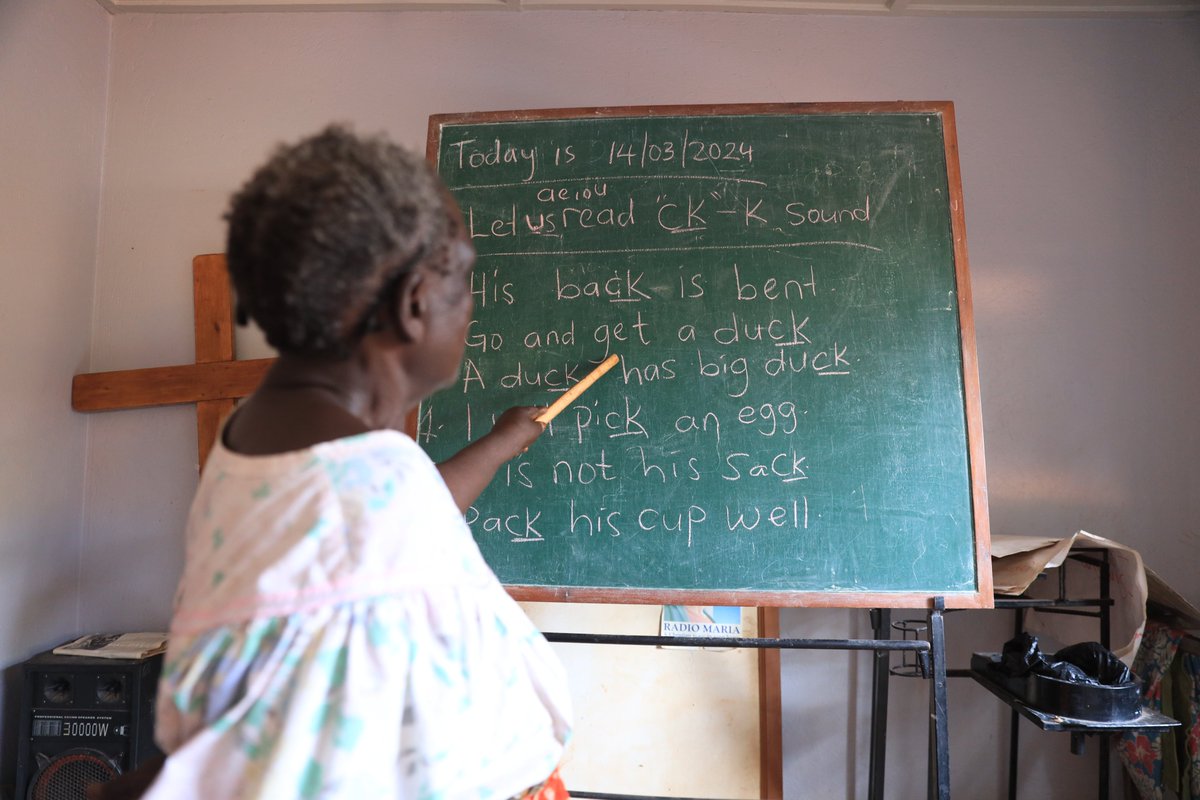 Today is 14/03/2024
aeiou
Let us read "ck" - K Sound
His back is bent.
Go and get a duck
A duck has big duck.
4. I pick an egg.
is not his sack
Pack his cup well.
RADIO MARIA
PROFESSIONAL SOUND SPEAKER SYSTEM
30000W